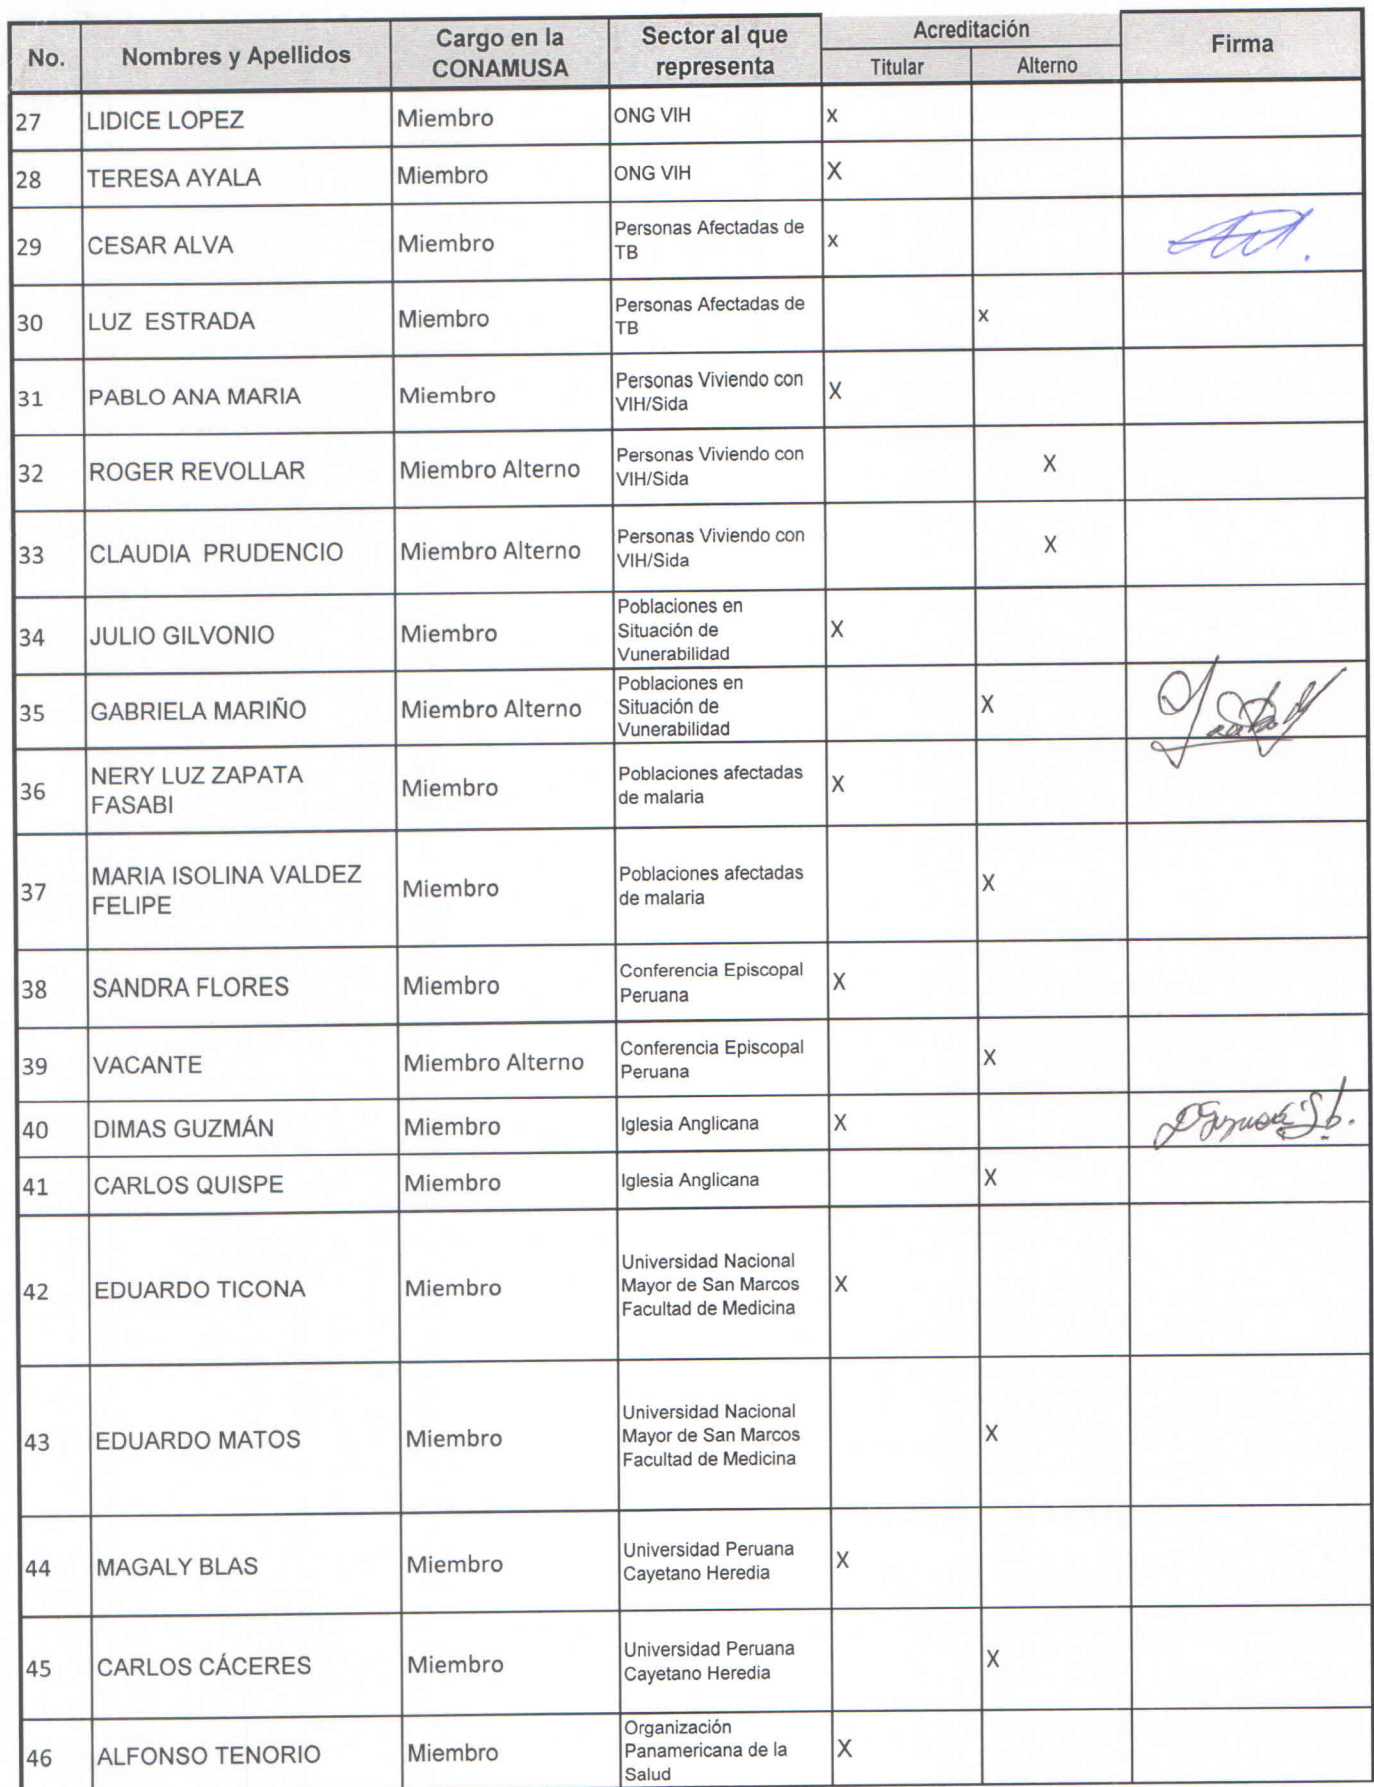 No. Nombres y Apellidos Cargo en la CONAMUSA Sector al que representa Acreditación Firma
Titular Alterno
27 LIDICE LOPEZ Miembro ONG VIH x
28 TERESA AYALA Miembro ONG VIH X
29 CESAR ALVA Miembro Personas Afectadas de
TB x
30 LUZ ESTRADA Miembro Personas Afectadas de
TB x
31 PABLO ANA MARIA Miembro Personas Viviendo con
VIH/Sida X
32 ROGER REVOLLAR Miembro Alterno Personas Viviendo con
VIH/Sida X
33 CLAUDIA PRUDENCIO Miembro Alterno Personas Viviendo con
VIH/Sida X
34 JULIO GILVONIO Miembro Poblaciones en
Situación de
Vunerabilidad X
35 GABRIELA MARIÑO Miembro Alterno Poblaciones en
Situación de
Vunerabilidad X
36 NERY LUZ ZAPATA
FASABI Miembro Poblaciones afectadas
de malaria X
37 MARIA ISOLINA VALDEZ
FELIPE Miembro Poblaciones afectadas
de malaria X
38 SANDRA FLORES Miembro Conferencia Episcopal
Peruana X
39 VACANTE Miembro Alterno Conferencia Episcopal
Peruana X
40 DIMAS GUZMÁN Miembro Iglesia Anglicana X
41 CARLOS QUISPE Miembro Iglesia Anglicana X
42 EDUARDO TICONA Miembro Universidad Nacional
Mayor de San Marcos
Facultad de Medicina X
43 EDUARDO MATOS Miembro Universidad Nacional
Mayor de San Marcos
Facultad de Medicina X
44 MAGALY BLAS Miembro Universidad Peruana
Cayetano Heredia X
45 CARLOS CÁCERES Miembro Universidad Peruana
Cayetano Heredia X
46 ALFONSO TENORIO Miembro Organización
Panamericana de la
Salud X